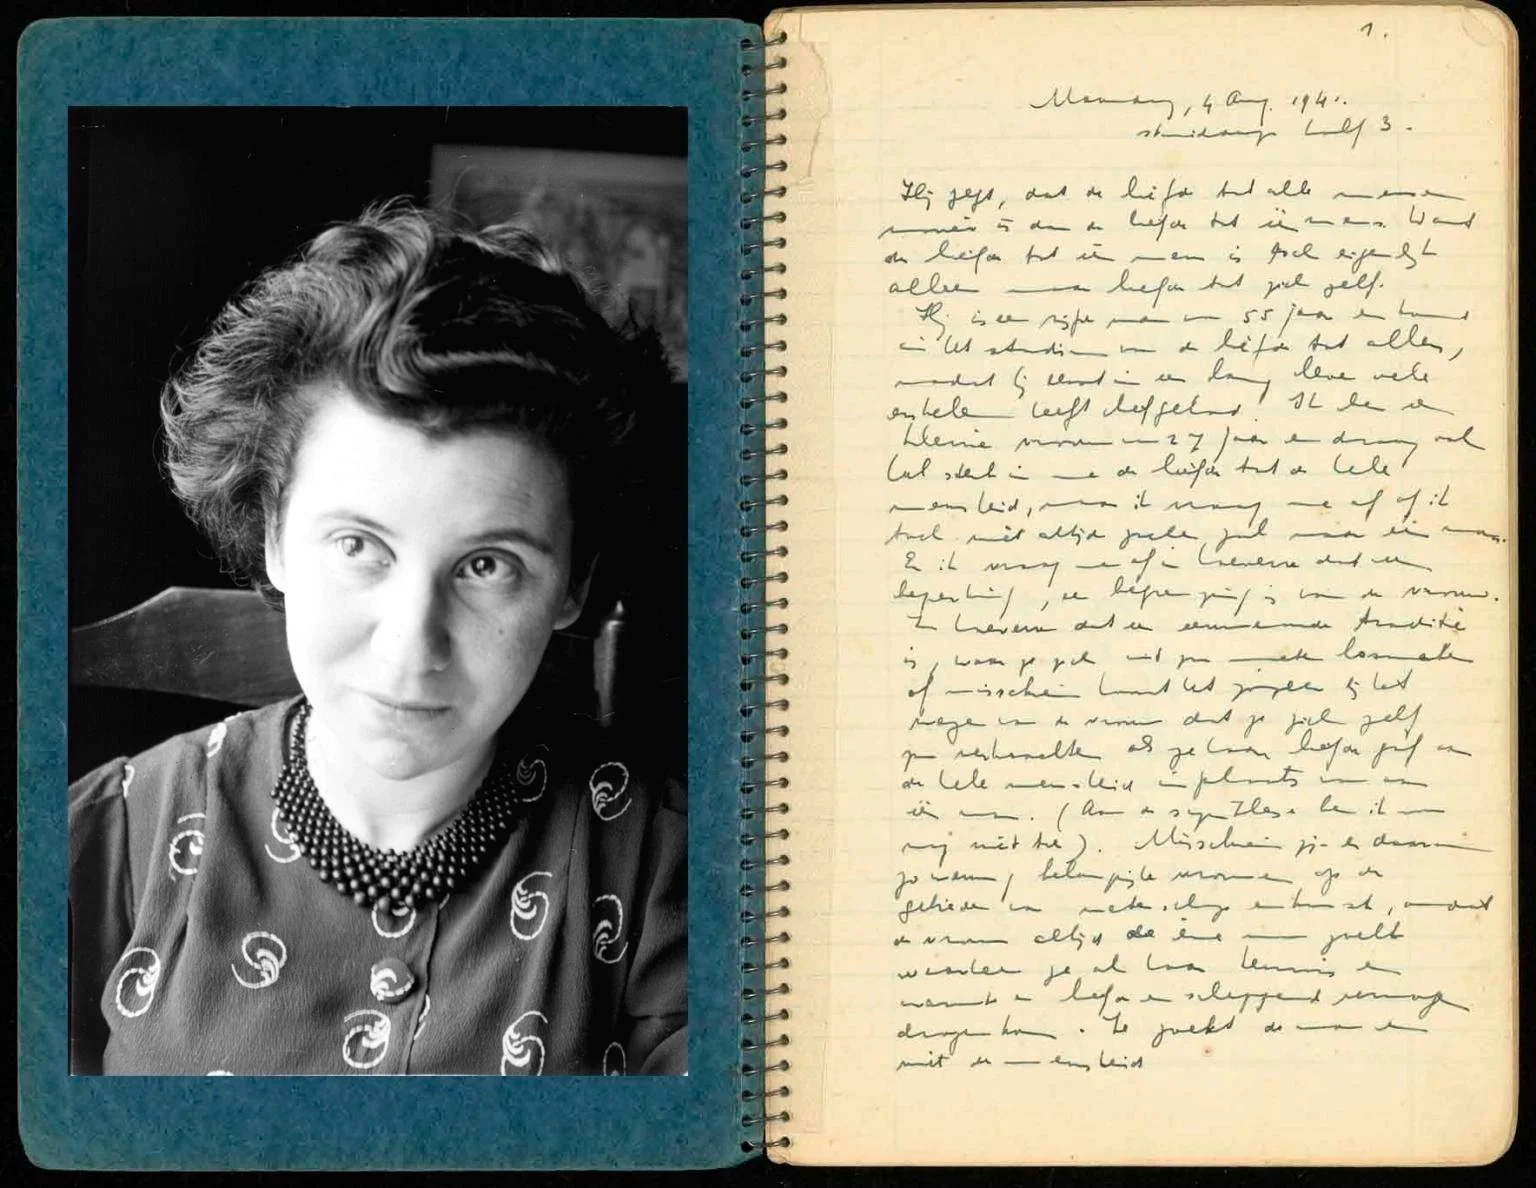 1.
Maandag, 4 Aug. 1941.
's middags half 3.
Hij zegt, dat de liefde tot alle mensen
mooier is dan de liefde tot één mens. Want
de liefde tot één mens is toch eigenlijk
alleen maar liefde tot zich zelf.
Hij is een rijpe man van 55 jaar en komt
in het stadium van de liefde tot allen,
nadat hij eerst in een lang leven vele
enkelen heeft liefgehad. Ik ben een
kleine vrouw van 27 jaar en draag ook
het sterk in me de liefde tot de hele
mensheid, maar ik vraag me af of ik
toch niet altijd zoeken zal naar één man.
En ik vraag me af in hoeverre dat een
beperking, een begrenzing is van de vrouw.
In hoeverre dat een eeuwenoude traditie
is, waar ze zich uit zou moeten losmaken
of misschien komt het zozeer bij het
wezen van de vrouw dat ze zich zelf
zou verkrachten als ze haar liefde gaf aan
de hele mensheid in plaats van aan
één man. (Aan de synthese ben ik
nog niet toe). Misschien zijn er daarom
zo weinig belangrijke vrouwen op de
gebieden van wetenschap en kunst, omdat
de vrouw altijd de éne man zoekt
waarheen ze al haar kennis en
warmte en liefde en scheppend vermogen
dragen kan. Ze zoekt de man en
niet de mensheid